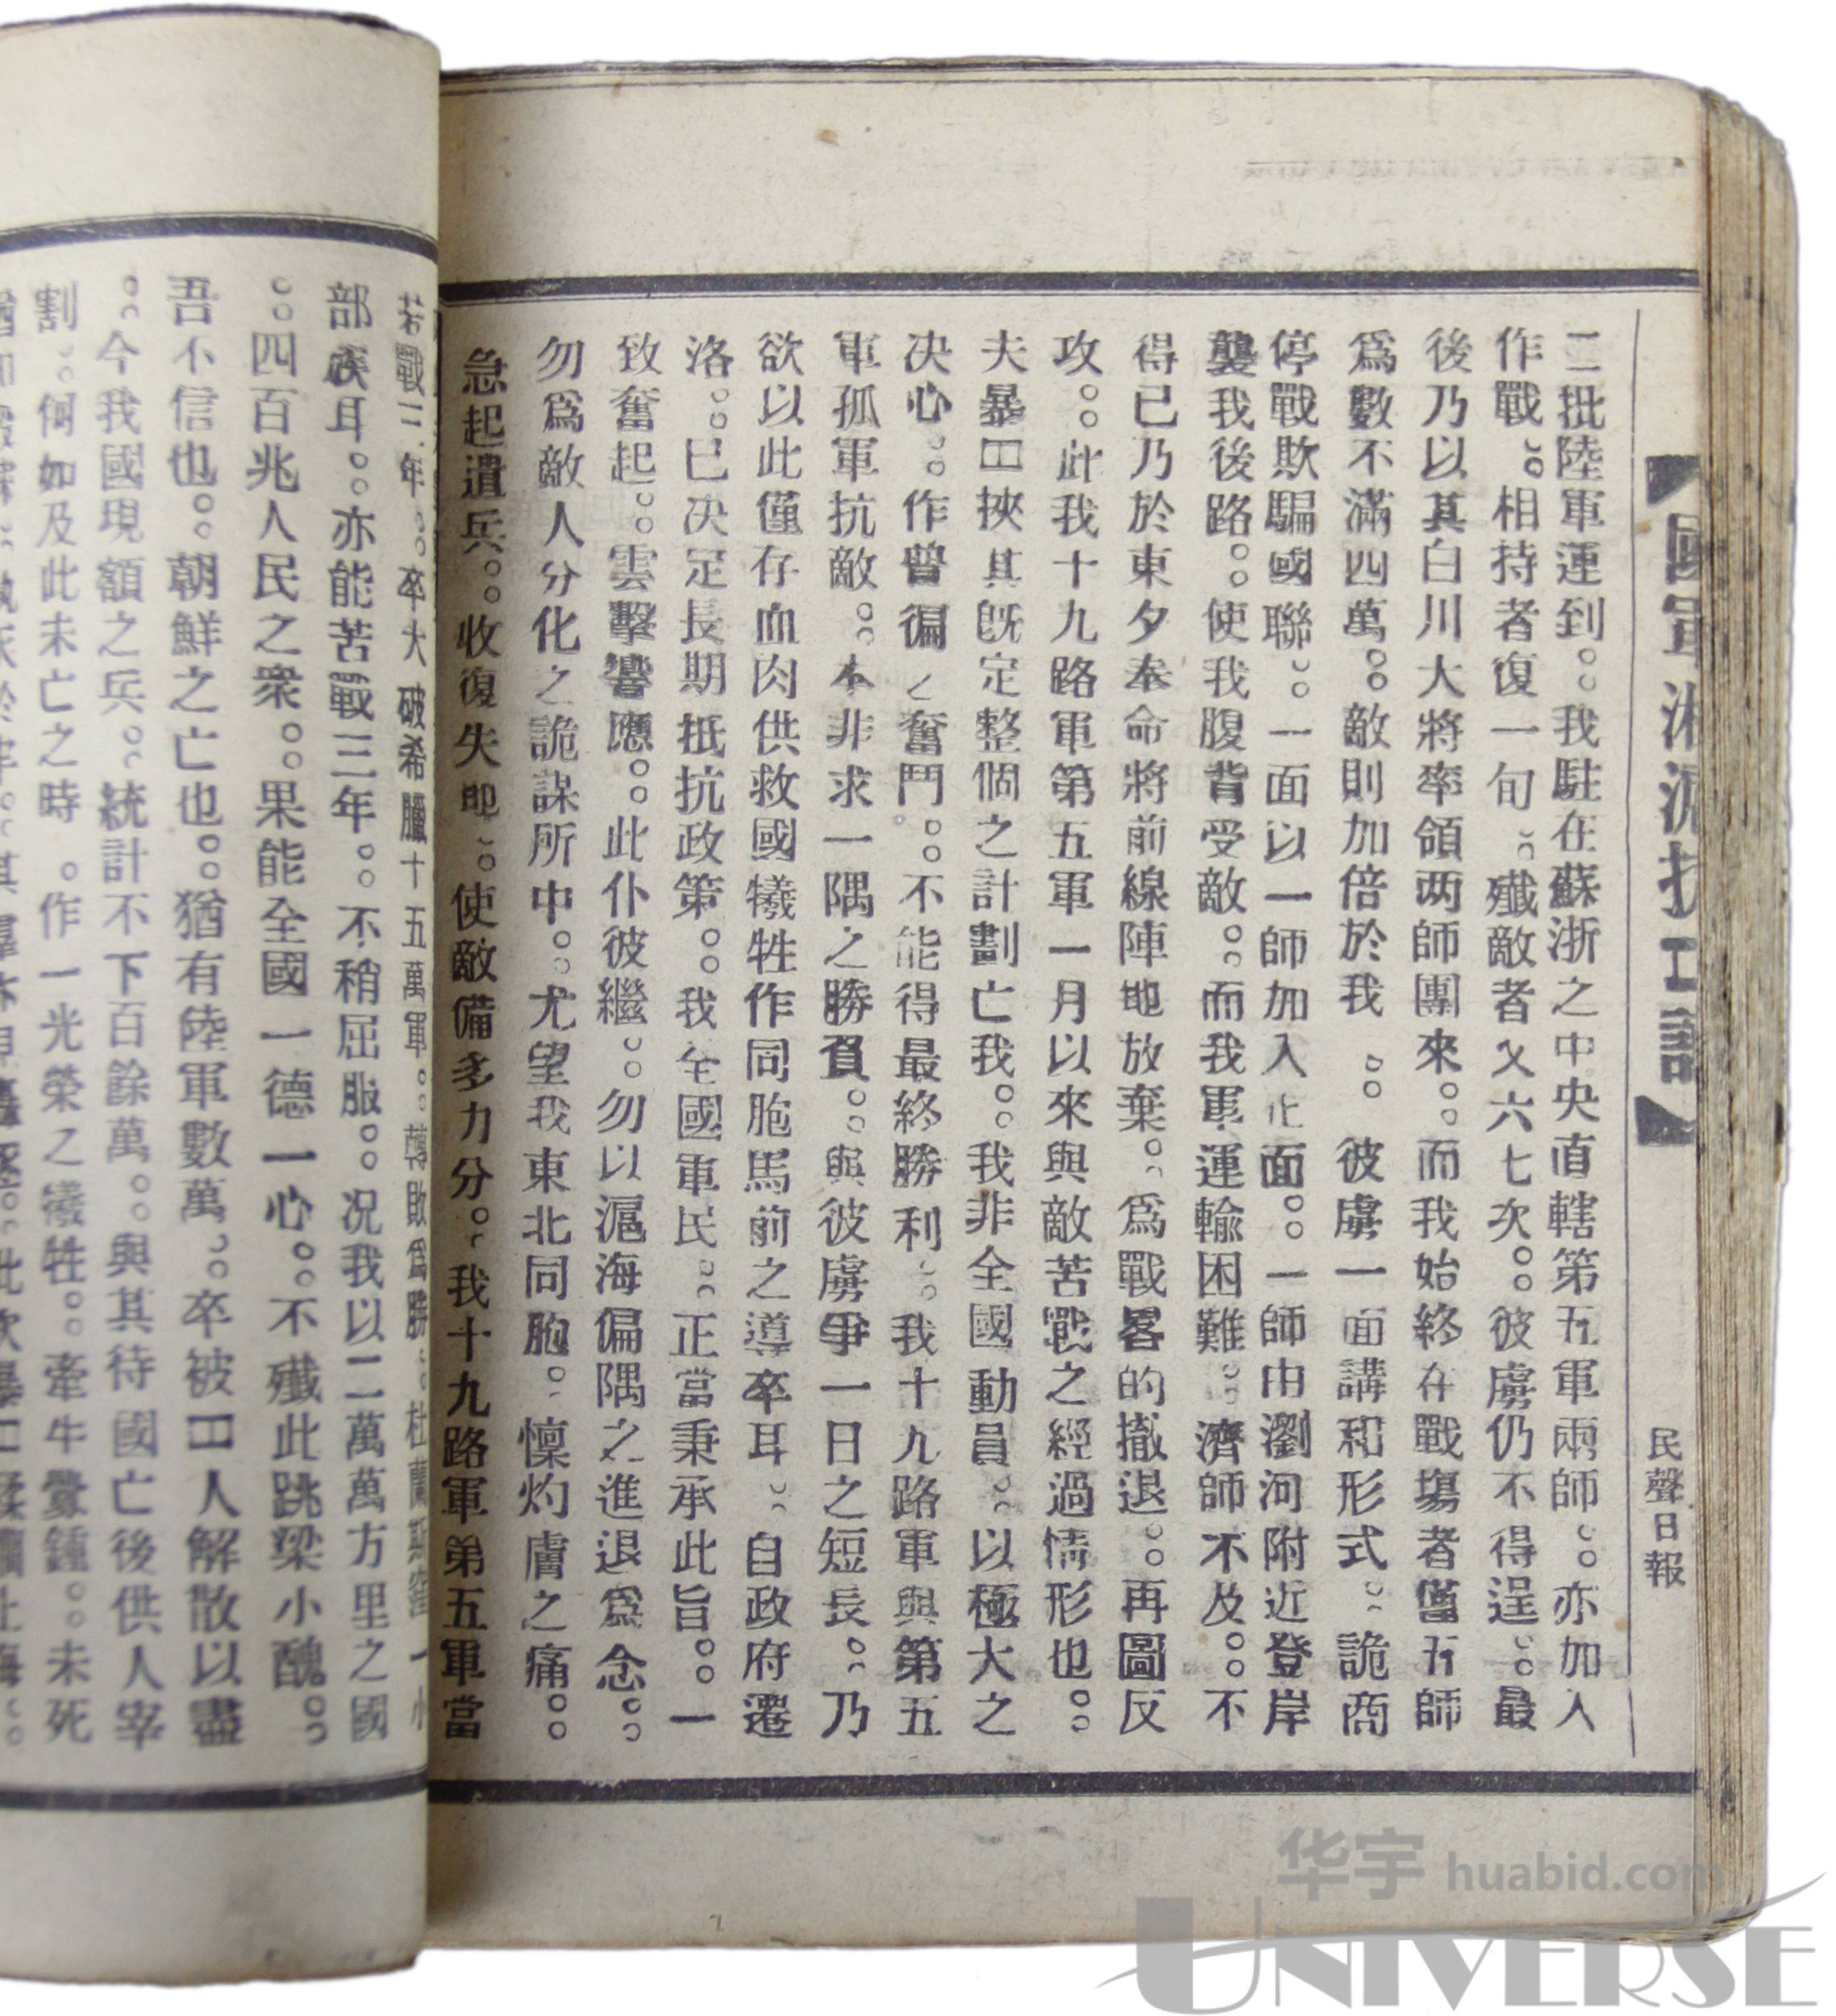 民聲日報
二批陸軍運到。。我駐在蘇浙之中央直轄第五軍兩師。。亦加入
作戰。。相持者復一旬。。殲敵者又六七次。。彼虜仍不得逞。。最
後乃以其白川大將率領两師團來。。而我始終在戰塲者僅五師
爲數不滿四萬。。敵則加倍於我。。彼虜一面講和形式。。詭商
停戰欺騙國聯。。一面以一師加入正面。。一師由瀏河附近登岸
襲我後路。。使我腹背受敵。。而我軍運輸困難。。濟師不及。。不
得已乃於東夕奉命將前線陣地放棄。。爲戰畧的撤退。。再圖反
攻。。此我十九路軍第五軍一月以來與敵苦戰之經過情形也。。
夫暴日挾其旣定整個之計劃亡我。。我非全國動員。。以極大之
决心。。作普徧之奮鬥。。不能得最終勝利。。我十九路軍與第五
軍孤軍抗敵。。本非求一隅之勝負。。與彼虜爭一日之短長。。乃
欲以此僅存血肉供救國犧牲作同胞馬前之導卒耳。。自政府遷
洛。。已决定長期抵抗政策。。我全國軍民。。正當秉承此旨。。一
致奮起。。雲擊響應。。此仆彼繼。。勿以滬海偏隅之進退爲念。。
勿爲敵人分化之詭謀所中。。尤望我東北同胞。。懍灼膚之痛。。
急起遣兵。。收復失地。。使敵備多力分。。我十九路軍第五軍當
若戰三年。。卒大破希臘十五萬軍。。轉敗爲勝。。杜蘭斯窪一小
部族耳。。亦能苦戰三年。。不稍屈服。。况我以二萬萬方里之國
。。四百兆人民之衆。。果能全國一德一心。。不殲此跳梁小醜。。
吾不信也。。朝鮮之亡也。。猶有陸軍數萬。。卒被日人解散以盡
。。今我國現額之兵。。統計不下百餘萬。。與其待國亡後供人宰
割。。何如及此未亡之時。作一光榮之犧牲。。牽牛釁鐘。。未死